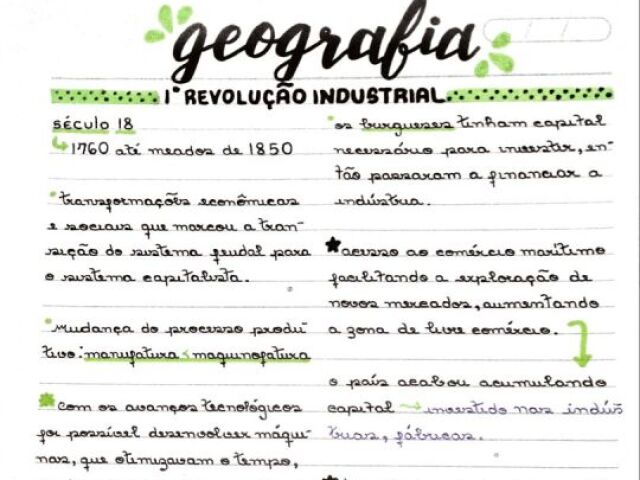 geografia
1ª REVOLUÇÃO INDUSTRIAL
século 18
1760 até meados de 1850
transformações econômicas
e sociais que marcou a tran-
sição do sistema feudal para
o sistema capitalista.
mudança do processo produ-
tivo: manufatura < maquinofatura
com os avanços tecnológicos
foi possível desenvolver máqui-
nas, que otimizavam o tempo,
os burgueses tinham capital
necessário para investir, en-
tão passaram a financiar a
indústria.
acesso ao comércio marítimo
facilitando a exploração de
novos mercados, aumentando
a zona de livre comércio.
o país acabou acumulando
capital → investido nas indús
trias, fábricas.